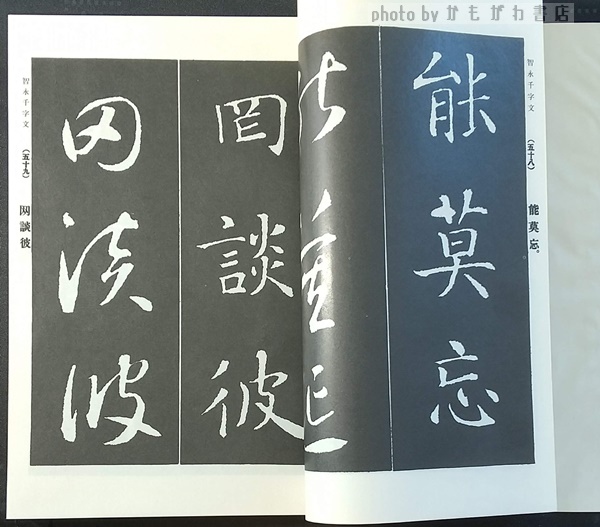 photo by かもがわ書店
智永千字文
(五十八)
能莫忘。
能莫忘
能莫忘
智永千字文
(五十九)
罔談彼
罔談彼
罔談彼